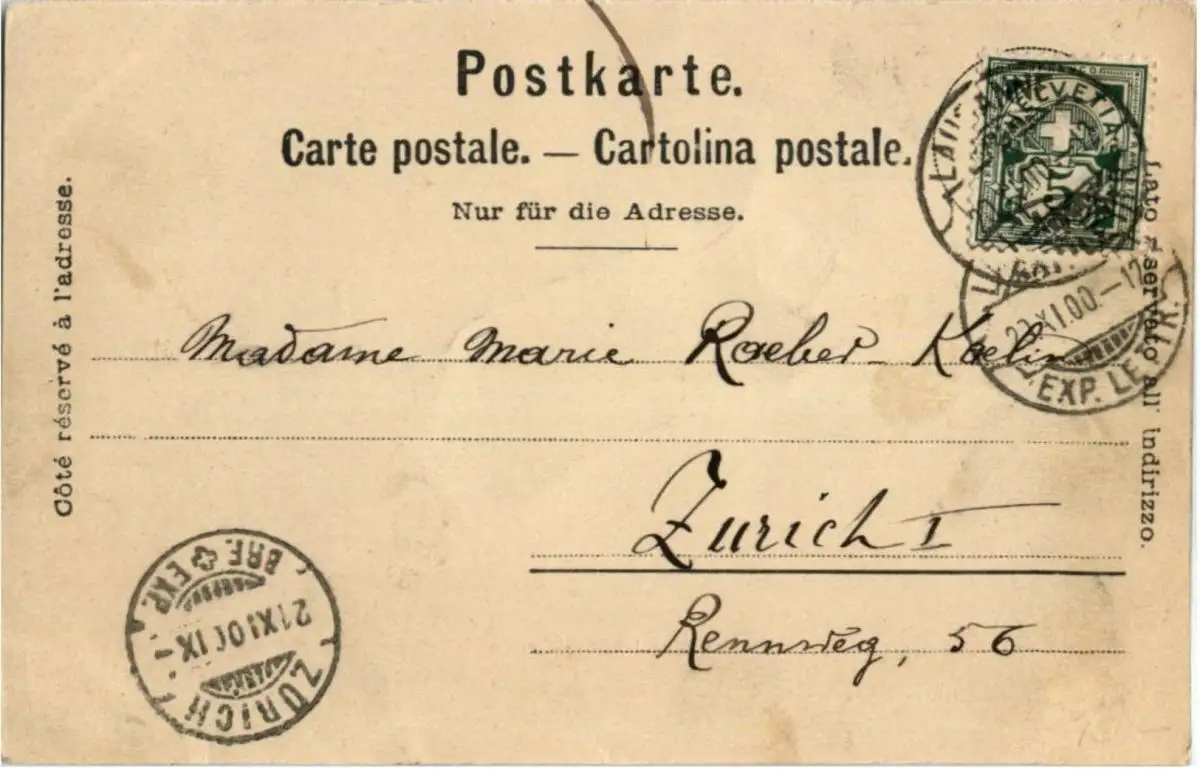 Postkarte.
Carte postale. — Cartolina postale.
Nur für die Adresse.
Côté réservé à l'adresse.
Lato riservato all' indirizzo.
HELVETIA
LAUSANNE
XI.00.–12
EXP. LETTR.
Madame Marie Raeber-Kaelin
Zurich I
Rennweg, 56
ZÜRICH
21.XI.00.IX–
BRF. EXP.